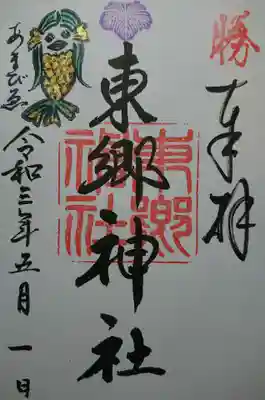 勝
奉拝
東郷神社
東郷神社
令和三年五月一日
あまびゑ